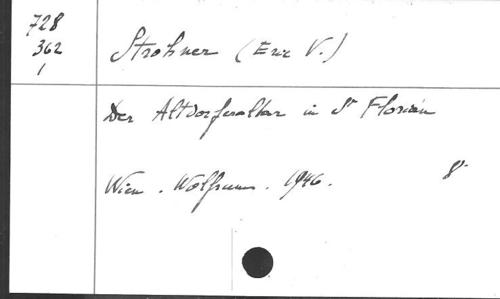 728
362
1
Strohner (Eric V.)
Der Altdorferaltar in St Florian
Wien. Wolfrum. 1946.
8°